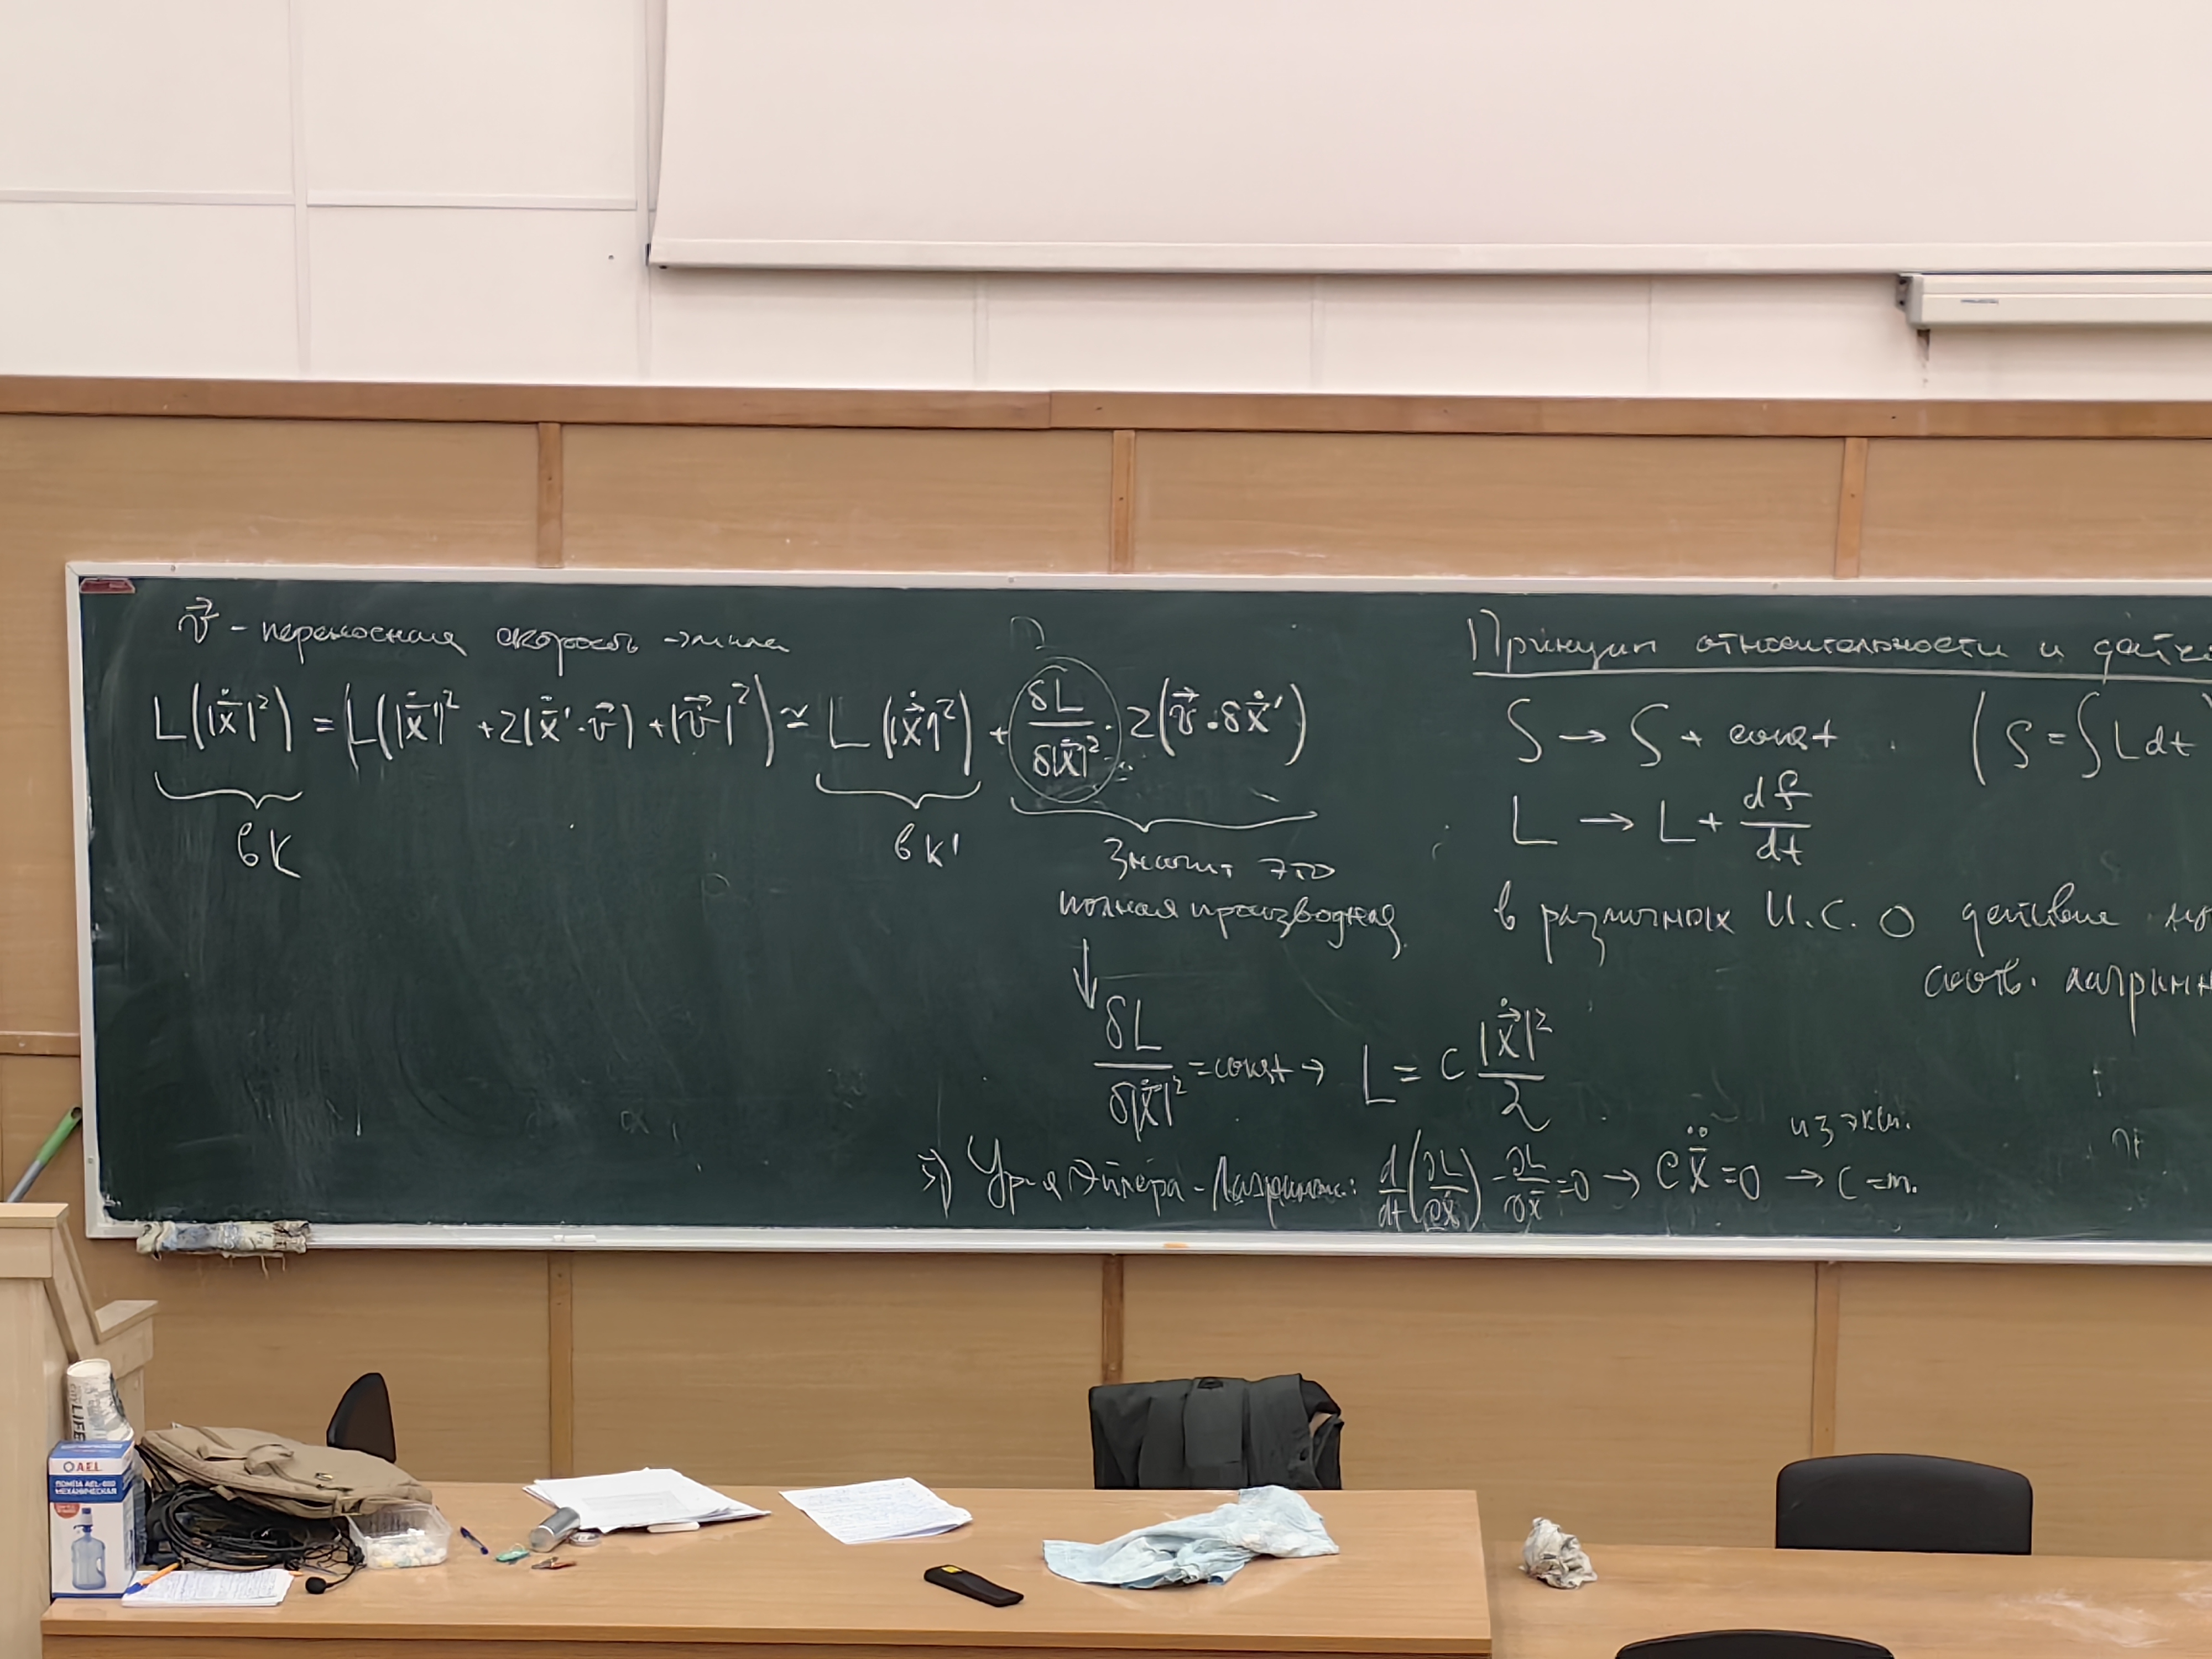 v⃗ - переносная скорость → мала
L(|ẋ|²) = L(|ẋ'|² + 2(ẋ'·v⃗) + |v⃗|²) ≃ L(|ẋ'|²) + δL/δ|ẋ|² · 2(v⃗·δẋ')
в K
в K'
Значит это
полная производная
↓
δL/δ|ẋ|² = const → L = C |ẋ|²/2
5) Ур-я Эйлера - Лагранжа: d/dt(∂L/∂ẋ) - ∂L/∂x̄ = 0 → Cẍ = 0 → C = m.
из эксп.
Принцип относительности и дейс
S → S + const . (S = ∫L dt
L → L + df/dt
в различных И.С.О действие
соотв. лагранж
LIFE
AEL
ПОМПА AEL
МЕХАНИЧЕСКАЯ